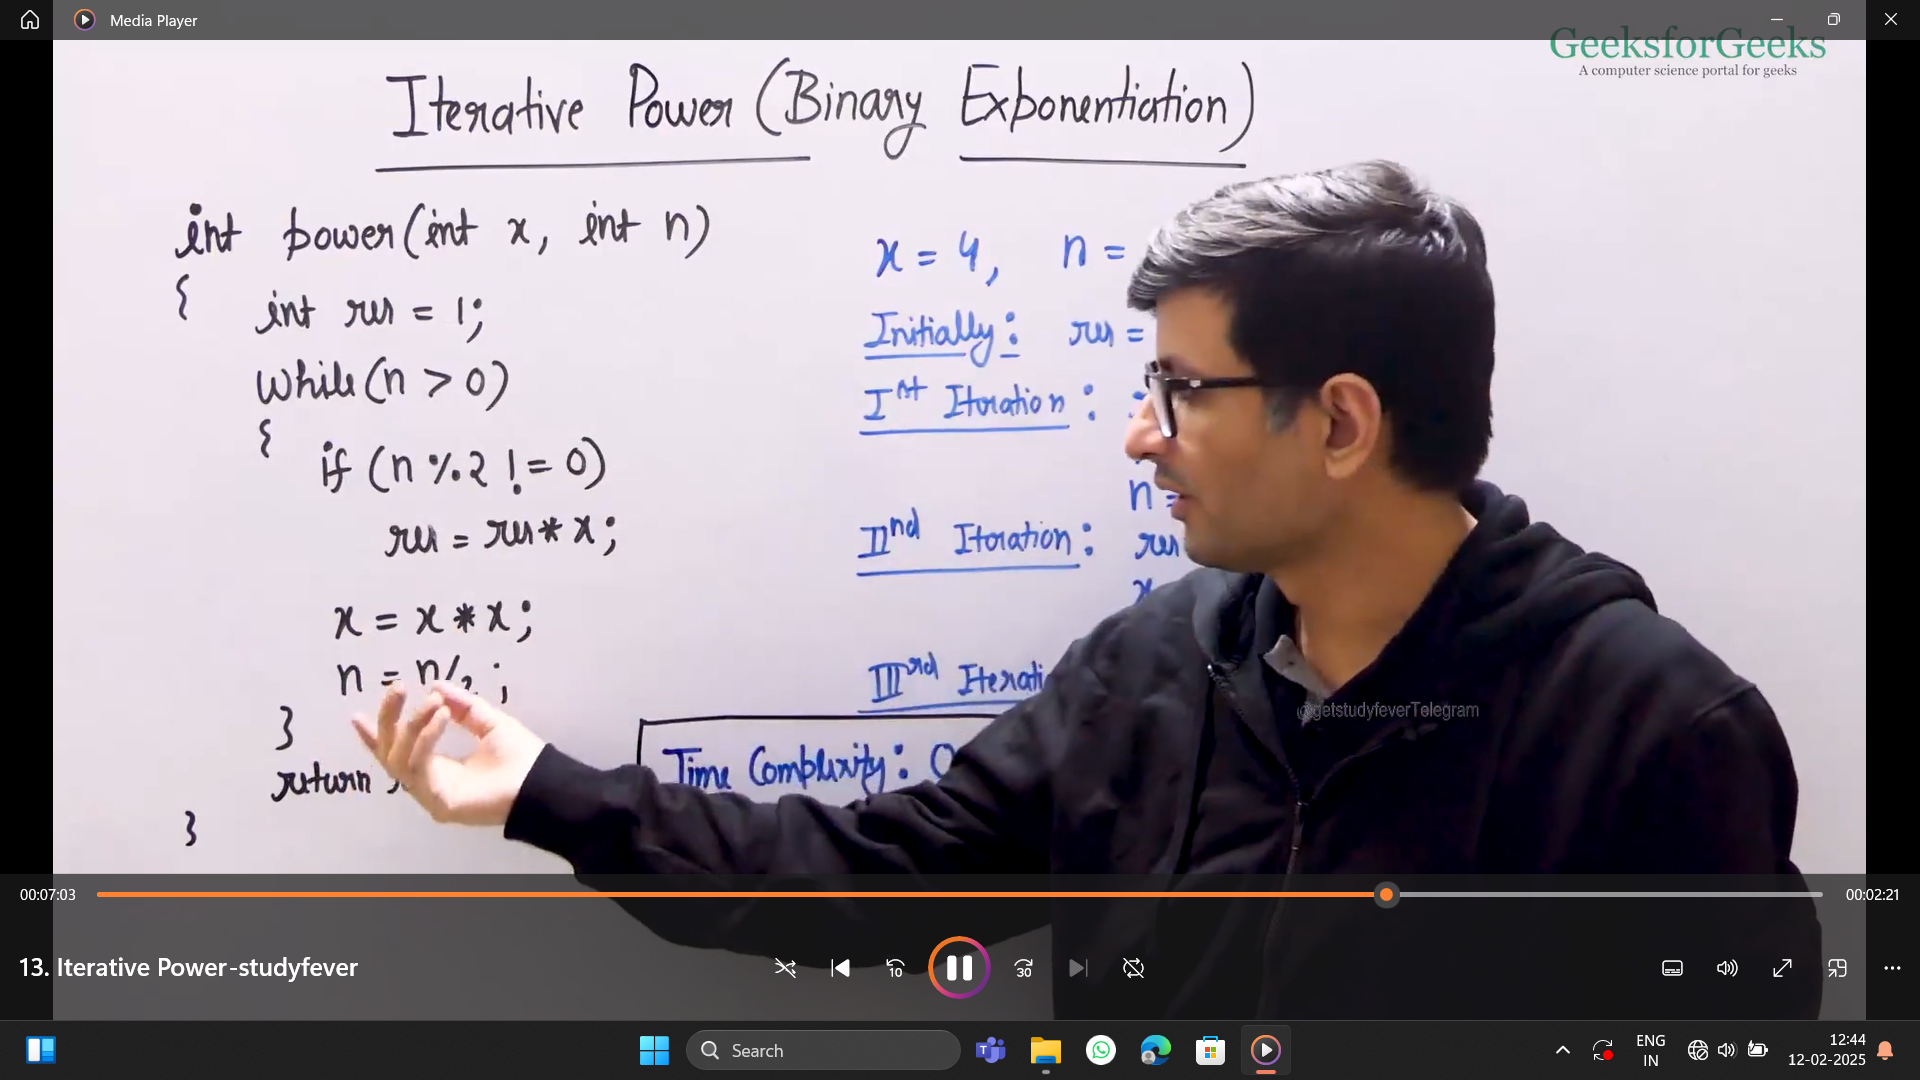 Media Player
GeeksforGeeks
A computer science portal for geeks
Iterative Power (Binary Exponentiation)
int power(int x, int n)
{
int res = 1;
while(n > 0)
{
if (n %2 != 0)
res = res * x;
x = x * x;
n = n/2 ;
}
return
}
x = 4, n =
Initially: res =
Ist Iteration :
n =
IInd Iteration : res
x
IIIrd Iterati
Time Complexity: O
@getstudyfeverTelegram
00:07:03
00:02:21
13. Iterative Power-studyfever
10
30
Search
ENG
IN
12:44
12-02-2025